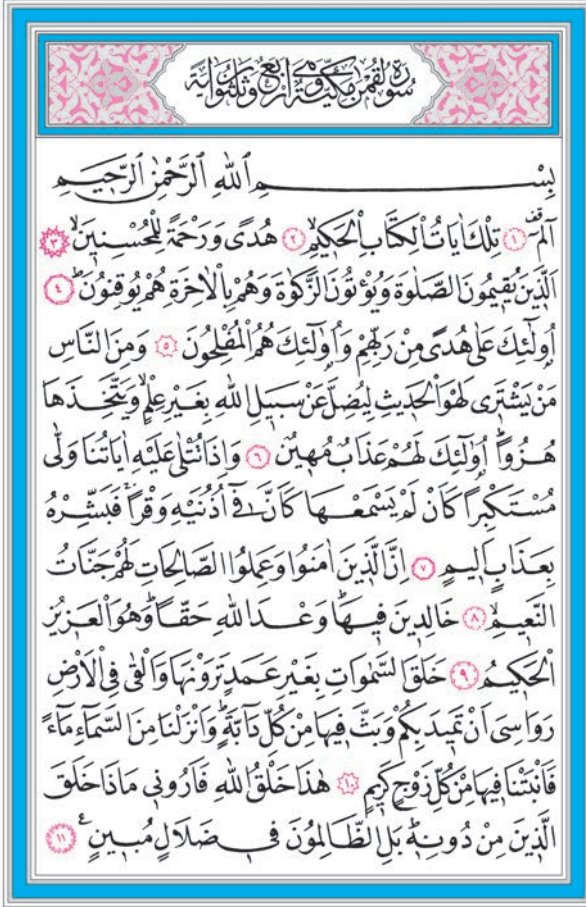 سُورَةُ لُقْمٰنَ مَكِّيَّةٌ وَهِيَ اَرْبَعٌ وَثَلٰثُونَ اٰيَةً
بِسْمِ ٱللّٰهِ ٱلرَّحْمٰنِ ٱلرَّحِيمِ
الٓمٓ ۚ ﴿١﴾ تِلْكَ اٰيَاتُ الْكِتَابِ الْحَكِيمِۙ ﴿٢﴾ هُدًى وَرَحْمَةً لِلْمُحْسِنِينَۙ ﴿٣﴾
اَلَّذِينَ يُقِيمُونَ الصَّلٰوةَ وَيُؤْتُونَ الزَّكٰوةَ وَهُمْ بِالْاٰخِرَةِ هُمْ يُوقِنُونَۜ ﴿٤﴾
اُو۬لٰٓئِكَ عَلٰى هُدًى مِنْ رَبِّهِمْ وَاُو۬لٰٓئِكَ هُمُ الْمُفْلِحُونَ ﴿٥﴾ وَمِنَ النَّاسِ
مَنْ يَشْتَرِى لَهْوَ الْحَدِيثِ لِيُضِلَّ عَنْ سَبِيلِ اللّٰهِ بِغَيْرِ عِلْمٍۗ وَيَتَّخِذَهَا
هُزُوًاۜ اُو۬لٰٓئِكَ لَهُمْ عَذَابٌ مُهِينٌ ﴿٦﴾ وَاِذَا تُتْلٰى عَلَيْهِ اٰيَاتُنَا وَلّٰى
مُسْتَكْبِرًا كَاَنْ لَمْ يَسْمَعْهَا كَاَنَّ فِٓى اُذُنَيْهِ وَقْرًاۚ فَبَشِّرْهُ
بِعَذَابٍ اَلِيمٍ ﴿٧﴾ اِنَّ الَّذِينَ اٰمَنُوا وَعَمِلُوا الصَّالِحَاتِ لَهُمْ جَنَّاتُ
النَّعِيمِۙ ﴿٨﴾ خَالِدِينَ فِيهَاۜ وَعْدَ اللّٰهِ حَقًّاۜ وَهُوَ الْعَزِيزُ
الْحَكِيمُ ﴿٩﴾ خَلَقَ السَّمٰوَاتِ بِغَيْرِ عَمَدٍ تَرَوْنَهَا وَاَلْقٰى فِى الْاَرْضِ
رَوَاسِىَ اَنْ تَمِيدَ بِكُمْ وَبَثَّ فِيهَا مِنْ كُلِّ دَٓابَّةٍۜ وَاَنْزَلْنَا مِنَ السَّمَٓاءِ مَٓاءً
فَاَنْبَتْنَا فِيهَا مِنْ كُلِّ زَوْجٍ كَرِيمٍ ﴿١٠﴾ هٰذَا خَلْقُ اللّٰهِ فَاَرُونِى مَاذَا خَلَقَ
الَّذِينَ مِنْ دُونِهِۜ بَلِ الظَّالِمُونَ فِى ضَلَالٍ مُبِينٍ۟ ﴿١١﴾